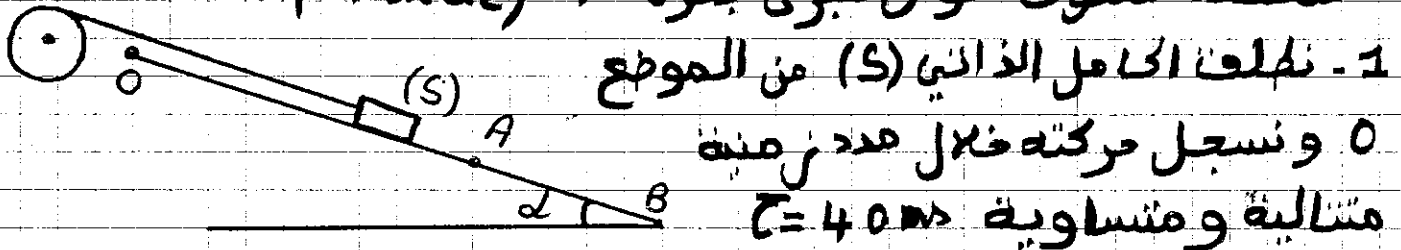 1 - نطلق الحامل الذاتي (S) من الموضع
O و نسجل حركته خلال مدد زمنية
متتالية و متساوية τ=40ms
O
(S)
A
α
B